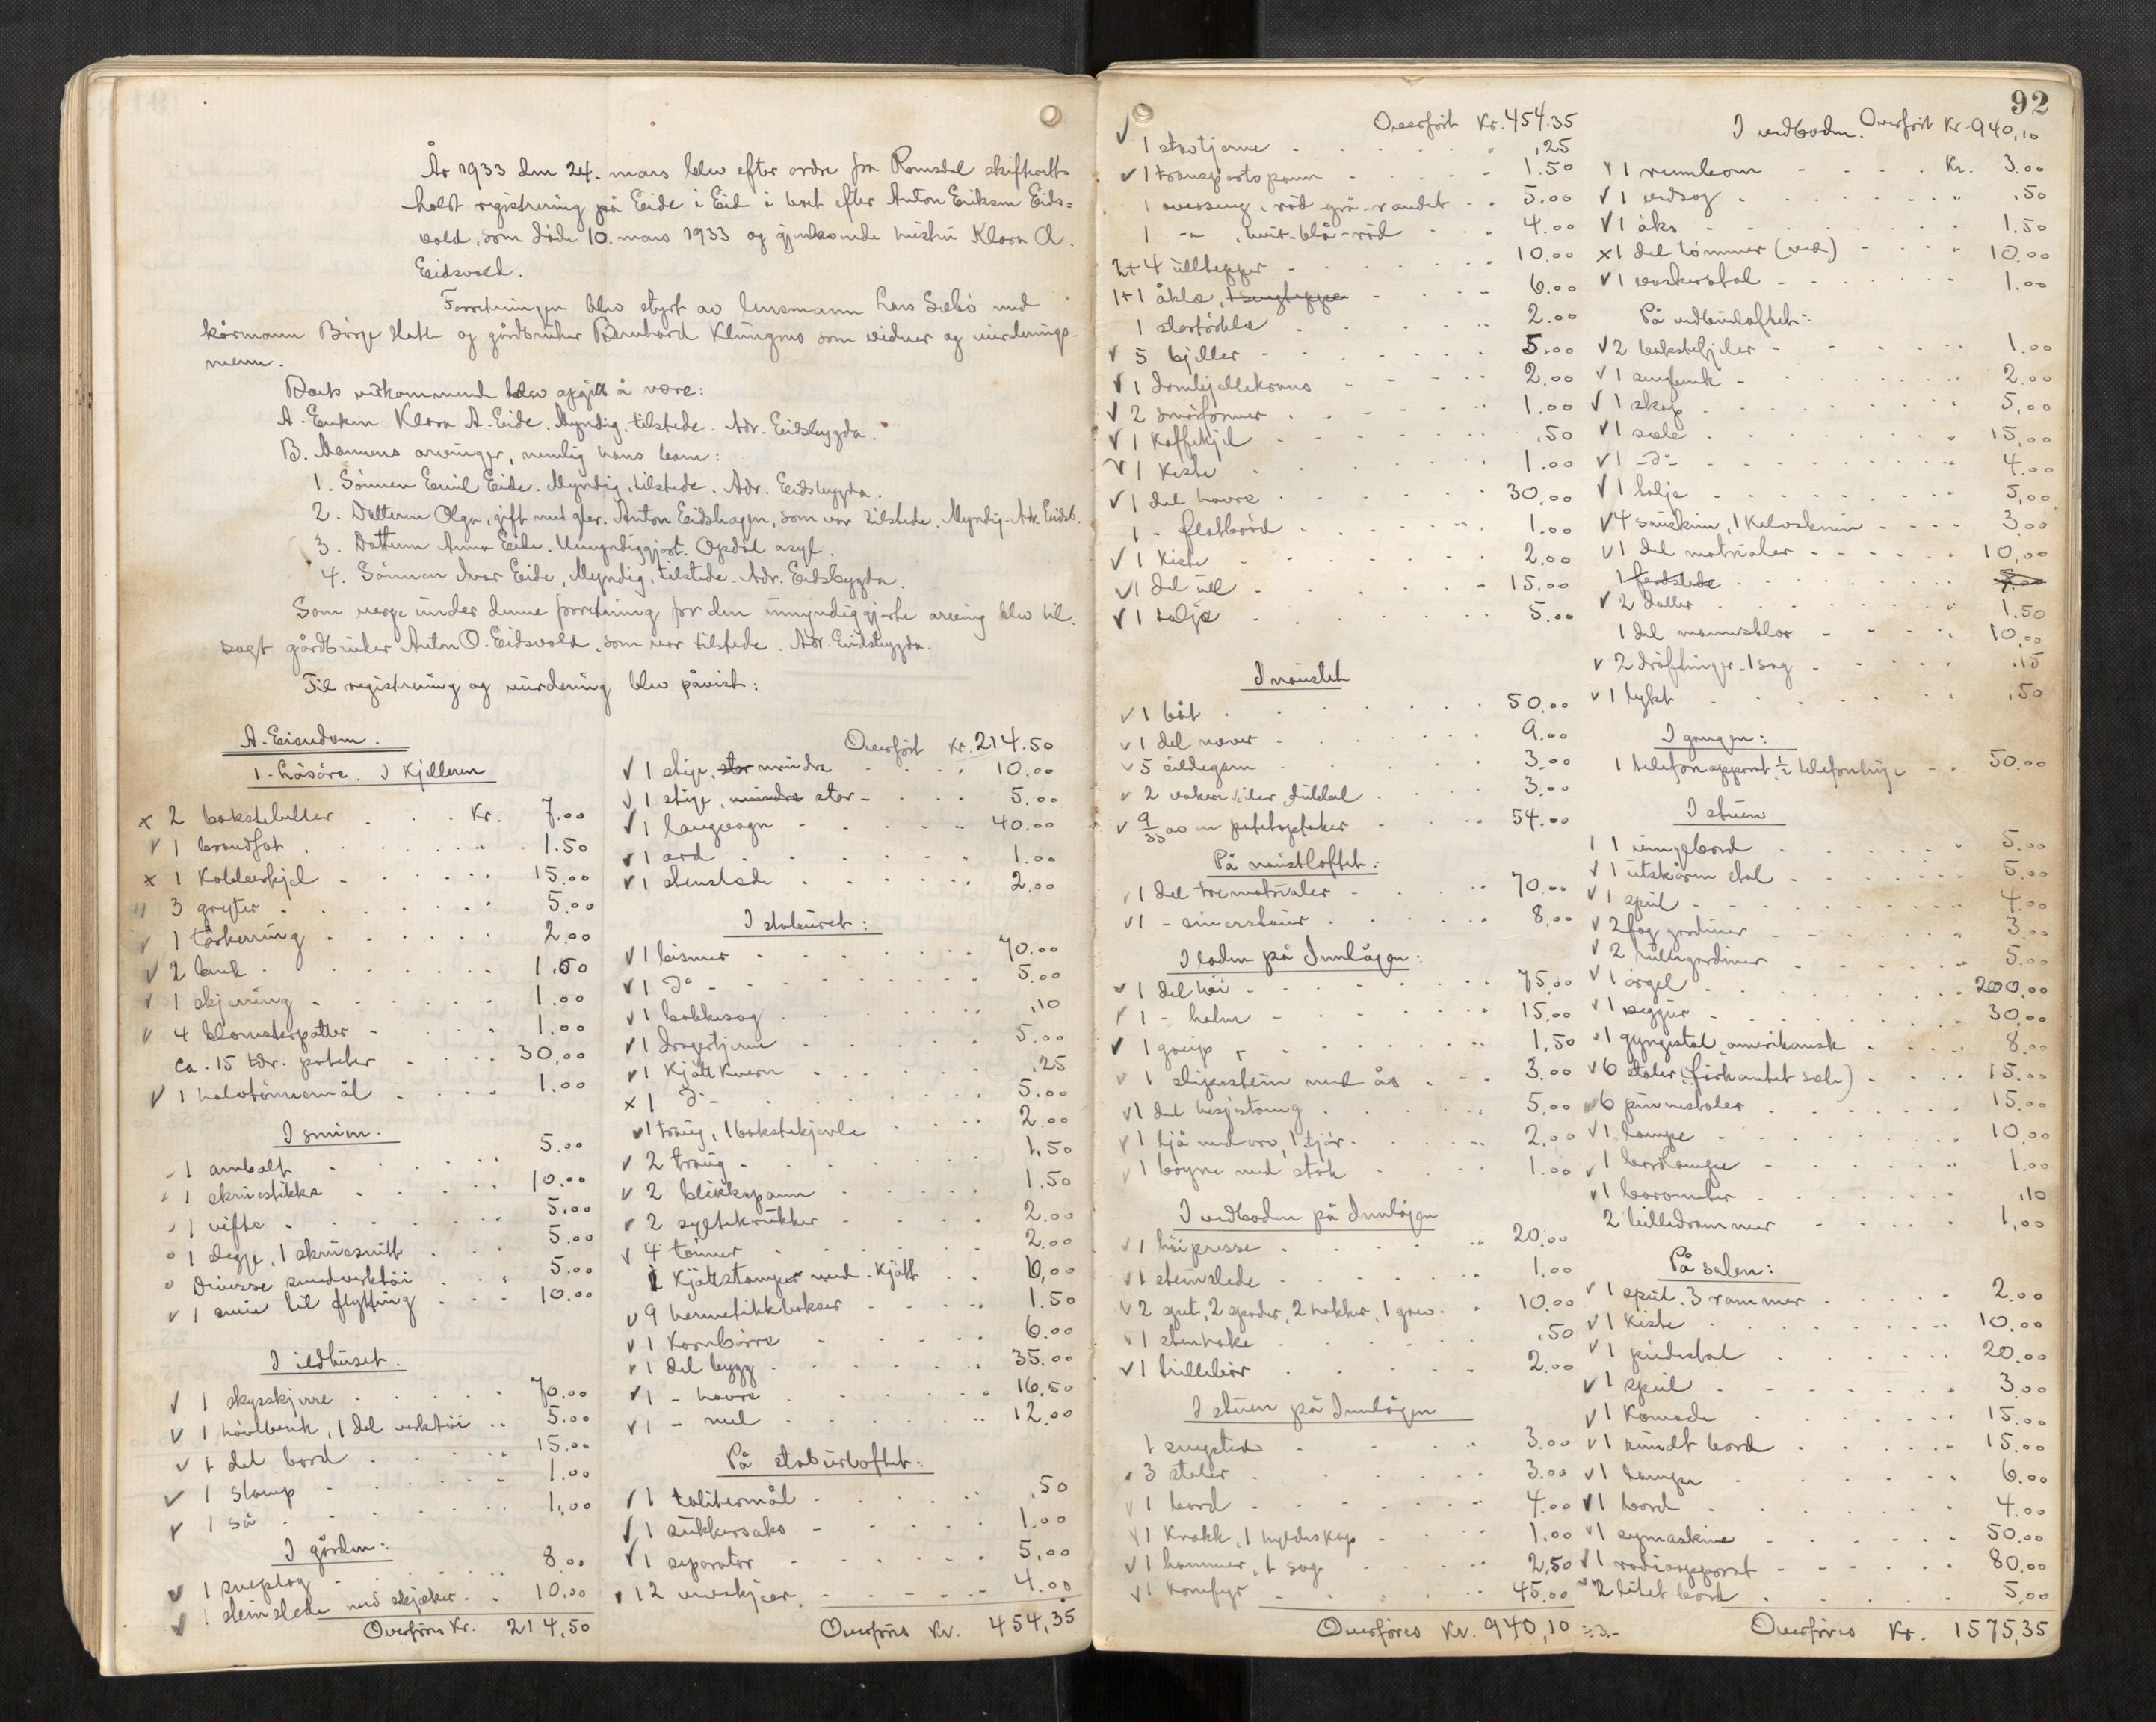 År 1933 den 24. mars blev efter ordre fra Romsdal skifterett
holdt registrering på Eide i Eid i boet efter Anton Eriksen Eids=
vold, som døde 10. mars 1933 og gjenlevende hustru Klara A.
Eidsvold.
Forretningen blev styrt av lensmann Lars Sæbö med
kårmann Börge Hatle og gårdbruker Bernhard Klungnes som vidner og vurderings-
menn.
Boets vedkommende blev opgitt å være:
A. Enken Klara A. Eide. Myndig, tilstede. Adr. Eidsbygda.
B. Mannens arvinger, nemlig hans barn:
1. Sönnen Emil Eide. Myndig, tilstede. Adr. Eidsbygda.
2. Datteren Olga, gift med gbr. Anton Eidshagen, som var tilstede. Myndig. Adr. Eidsb.
3. Datteren Anna Eide. Umyndiggjort. Opdöl asyl.
4. Sönnen Ivar Eide, Myndig, tilstede. Adr. Eidsbygda.
Som verge under denne forretning for den umyndiggjorte arving blev til
sagt gårdbruker Anton O. Eidsvold, som var tilstede. Adr. Eidsbygda.
Til registrering og vurdering blev påvist:
A. Eiendom.
1. Lösöre. I Kjelleren
x 2 bakstebutter Kr. 7.00
v 1 brandfat 1.50
x 1 Kobberkjel 15.00
v 3 gryter 5.00
v 1 tørkerring 2.00
v 2 benk 1.50
v 1 skjerring 1.00
v 4 blomsterpotter 1.00
ca. 15 tdr. poteter 30.00
v 1 halvtönnemål 1.00
I smien.
1 ambolt 5.00
1 skruestikke 10.00
1 vifte 5.00
1 slegge, 1 skruesnitt 5.00
Diverse smedverktöi 5.00
v 1 smie til flytting 10.00
I ildhuset.
v 1 skysskjerre 70.00
v 1 hövlbenk, 1 del verktöi 5.00
v 1 del bord 15.00
v 1 stamp 1.00
v 1 så 1.00
I gården:
v 1 sneplog 8.00
v 1 steinslede med skjæker 10.00
Overföres Kr. 214,50
Overfört Kr. 214.50
v 1 stige, stor mindre 10.00
v 1 stige, mindre stor 5.00
v 1 langvogn 40.00
v 1 ard 1.00
v 1 stenslede 2.00
I stabburet:
v 1 bismer 70.00
v 1 do 5.00
v 1 bakkesag .10
v 1 dragertjerne 5.00
v 1 Kjöttkvern .25
x 1 do 5.00
v 1 traug, 1 bakstekjevle 2.00
v 2 traug 1.50
v 2 blikkspann 1.50
v 2 syltekrukker 2.00
v 4 tönner 2.00
1 Kjöttstamper med Kjött 10,00
v 9 hermetikkbokser 1.50
v 1 Kornbörre 6.00
v 1 del bygg 35.00
v 1 - havre 16.50
v 1 - mel 12.00
På stabursloftet:
v 1 tolitermål .50
v 1 sukkersaks 1.00
v 1 separator 5.00
12 veskjær 4.00
Overföres Kr. 454,35
92
Overfört Kr. 454.35
v 1 stavtjerne .25
v 1 transportspann 1.50
1 overseng, röd-grå-randet 5.00
1 -"- , hvit-blå-röd 4.00
2+4 ulltepper 10.00
1+1 åkle, 1 sengteppe 6.00
2.00
v 5 bjeller 5.00
v 1 dombjellekrans 2.00
v 2 småformer 1.00
v 1 Kaffekjel .50
v 1 Kiste 1.00
v 1 del havre 30.00
1 - flatbröd 1.00
v 1 Kiste 2.00
v 1 del ull 15.00
v 1 balje 5.00
I naustet
v 1 båt 50.00
v 1 del never 9.00
v 5 sildegarn 3.00
v 2 3.00
v 54.00
På naustloftet:
v 1 del trematrialer 70.00
v 1 - einerstaur 8.00
I löden på Innlågen:
v 1 del höi 75.00
v 1 - halm 15.00
v 1 greip 1.50
v 1 slipestein med ås 3.00
v 1 del hesjestaung 5.00
v 1 ljå med orv, 1 tjör 2.00
v 1 böyne med stök 1.00
I vedboden på Innlågen
v 1 höipresse 20.00
v 1 steinslede 1.00
v 2 spett, 2 spader, 2 hakker, 1 grev 10.00
v 1 stenhake .50
v 1 trillebör 2.00
I stuen på Innlågen
1 sengsted 3.00
3 stoler 3.00
v 1 bord 4.00
v 1 Krakk, 1 hyldeskap 1.00
v 1 hammer, 1 sag 2,50
v 1 Komfyr 45.00
Overföres Kr. 940,10
I vedboden. Overfört Kr. 940,10
v 1 rumbom Kr. 3.00
v 1 vedsag .50
v 1 öks 1.50
x 1 del tömmer (ved) 10.00
v 1 vaskerstol 1.00
På vedbuloftet:
v 2 bakstefjeler 1.00
v 1 2.00
v 1 skap 5.00
v 1 sele 15.00
v 1 -do- 4.00
v 1 balje 5.00
v 4 saueskinn, 1 Kalveskinn 3.00
v 1 del matrialer 10.00
v 2 daller 1.50
1 del mannsklær 10.00
v 2 dröftinger, 1 sag .15
v 1 lykt .50
I gangen:
1 telefonapparat, ½ telefonlinje 50.00
I stuen
1 vingebord 5.00
v 1 utskåren stol 5.00
v 1 speil 4.00
v 2 fag gardiner 3.00
v 2 rullegardiner 5.00
v 1 orgel 200.00
v 1 veggur 30.00
v 1 gyngestol, amerikansk 8.00
v 6 stoler (firkantet sete) 15.00
v 6 pinnestoler 15.00
v 1 lampe 10.00
v 1 bordlampe 1.00
v 1 barometer .10
2 billedrammer 1,00
På salen:
v 1 speil, 3 rammer 2.00
v 1 Kiste 10.00
v 1 piedestal 20.00
v 1 speil 3.00
v 1 Komode 15.00
v 1 rundt bord 15.00
v 1 lampe 6.00
v 1 bord 4.00
v 1 symaskine 50.00
v 1 radioapparat 80.00
v 2 litet bord 5.00
Overföres Kr. 1575,35